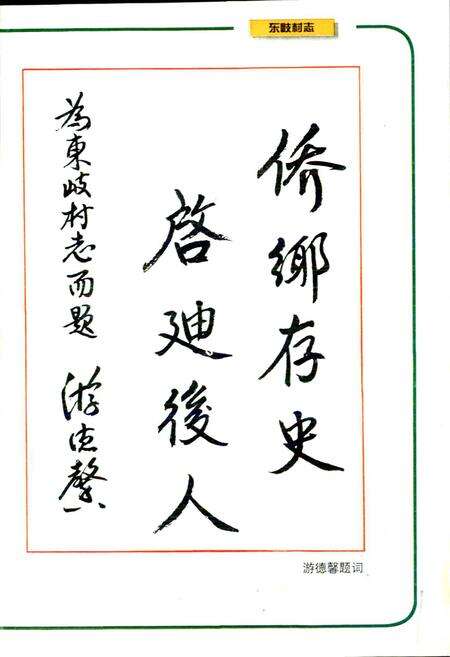 东歧村志
侨鄉存史
啓迪後人
為東岐村志而题
游德馨
游德馨题词